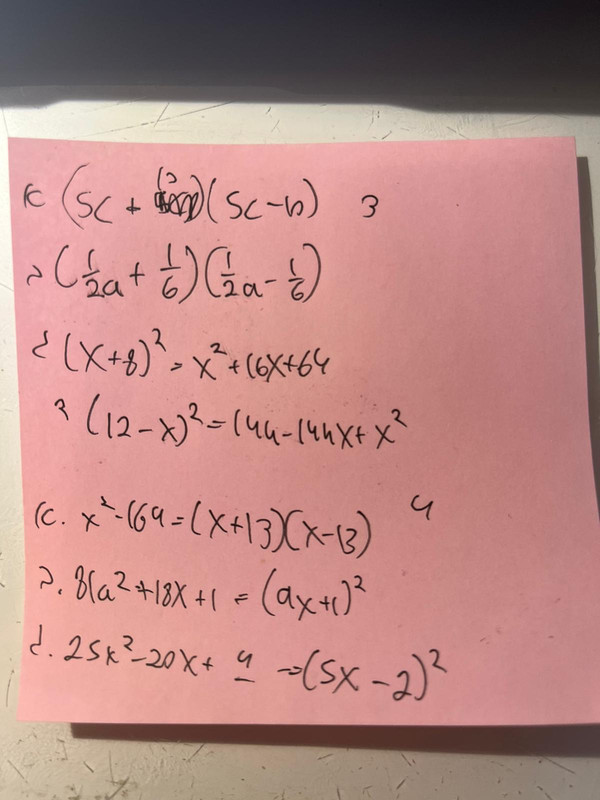 א (5c + b)(5c-b) 3
ב (1/2a + 1/6)(1/2a - 1/6)
ג (x+8)² = x²+16x+64
ד (12-x)² = 144-144x+x²
א. x²-169=(x+13)(x-13) 4
ב. 81a²+18x+1 = (9x+1)²
ג. 25x²-20x+ 4 =(5x-2)²